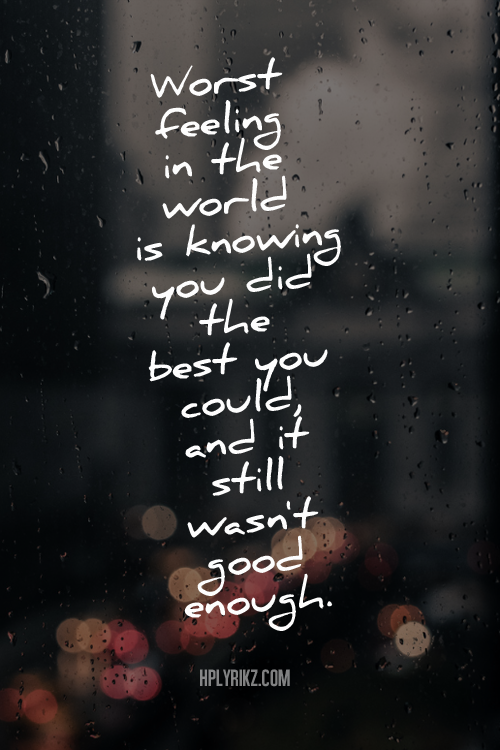 Worst
feeling
in the
world
is knowing
you did
the
best you
could,
and it
still
wasn't
good
enough.
HPLYRIKZ.COM